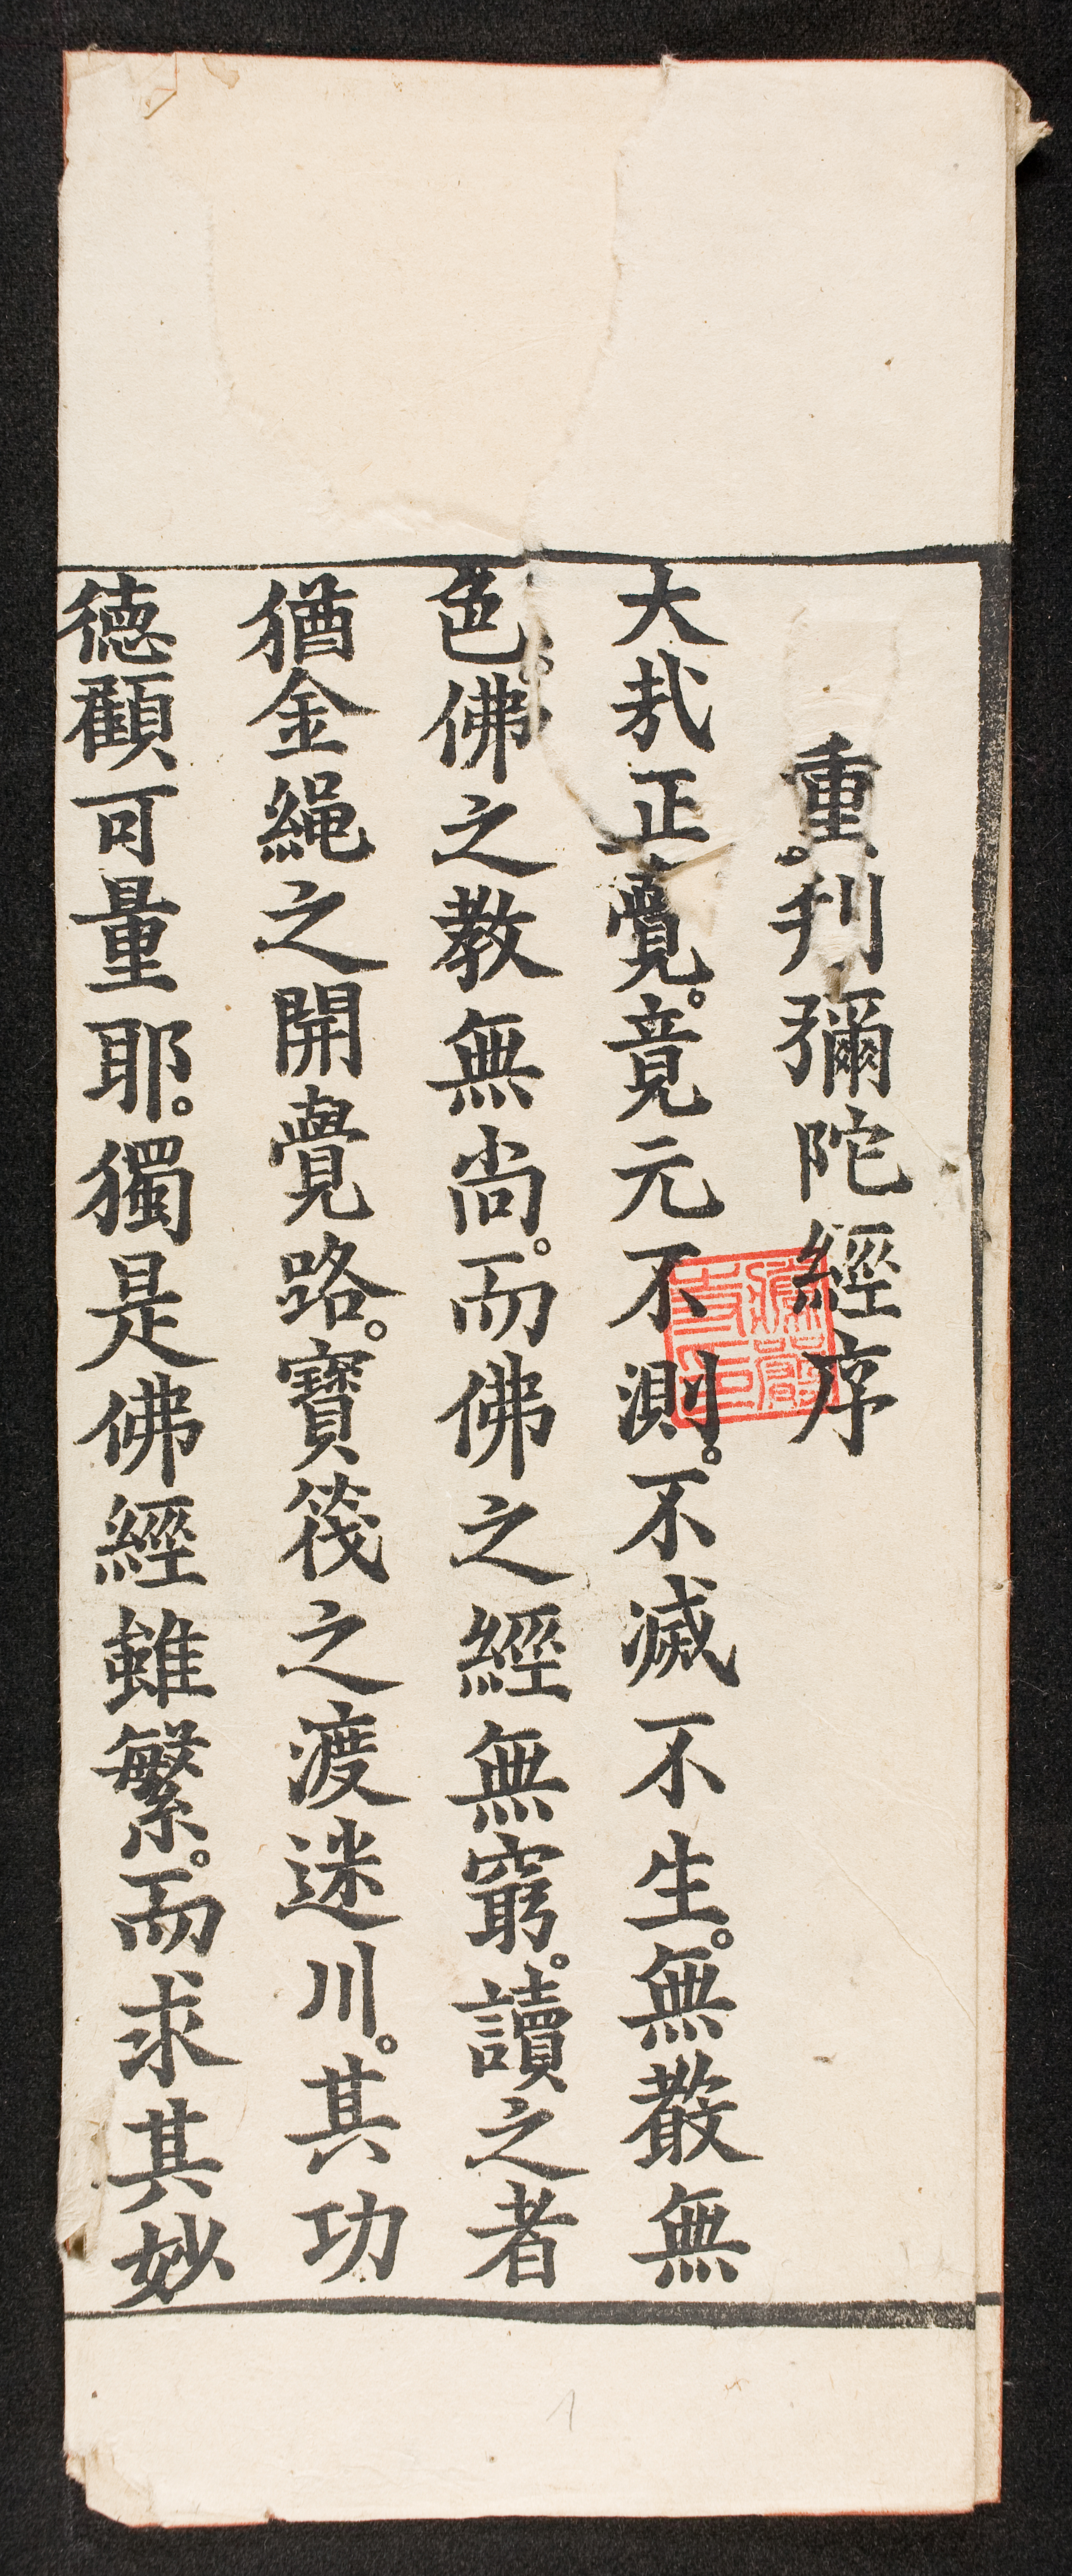 重刋彌陀經序
大哉正覺。竟元不測。不滅不生。無叢無
色。佛之教無尚。而佛之經無窮。讀之者
猶金繩之開覺路。寳筏之渡迷川。其功
德顧可量耶。獨是佛經雖繁。而求其妙
1